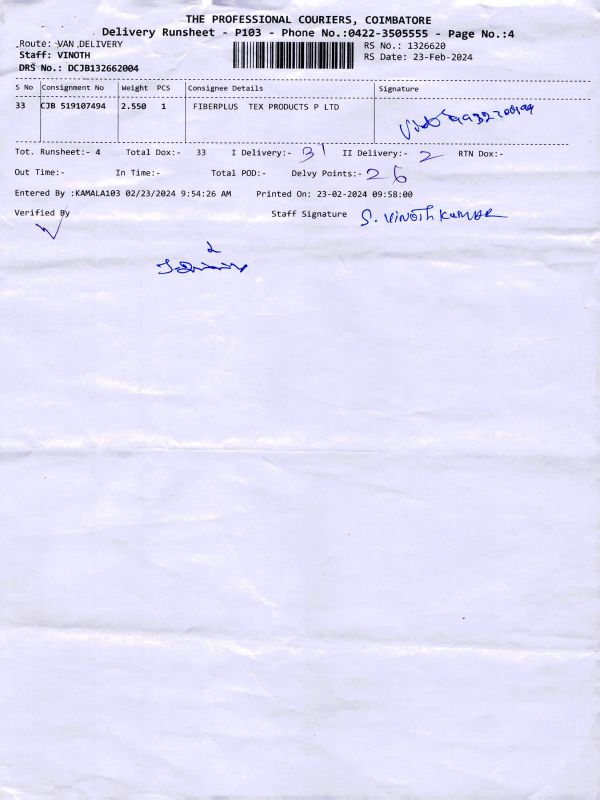 THE PROFESSIONAL COURIERS, COIMBATORE
Delivery Runsheet - P103 - Phone No.:0422-3505555 - Page No.:4
Route: VAN DELIVERY RS No.: 1326620
Staff: VINOTH RS Date: 23-Feb-2024
DRS No.: DCJB132662004
S No Consignment No Weight PCS Consignee Details Signature
33 CJB 519107494 2.550 1 FIBERPLUS TEX PRODUCTS P LTD
Tot. Runsheet:- 4 Total Dox:- 33 I Delivery:- 31 II Delivery:- 2 RTN Dox:-
Out Time:- In Time:- Total POD:- Delvy Points:- 26
Entered By :KAMALA103 02/23/2024 9:54:26 AM Printed On: 23-02-2024 09:58:00
Verified By Staff Signature S. VINOTH KUMAR